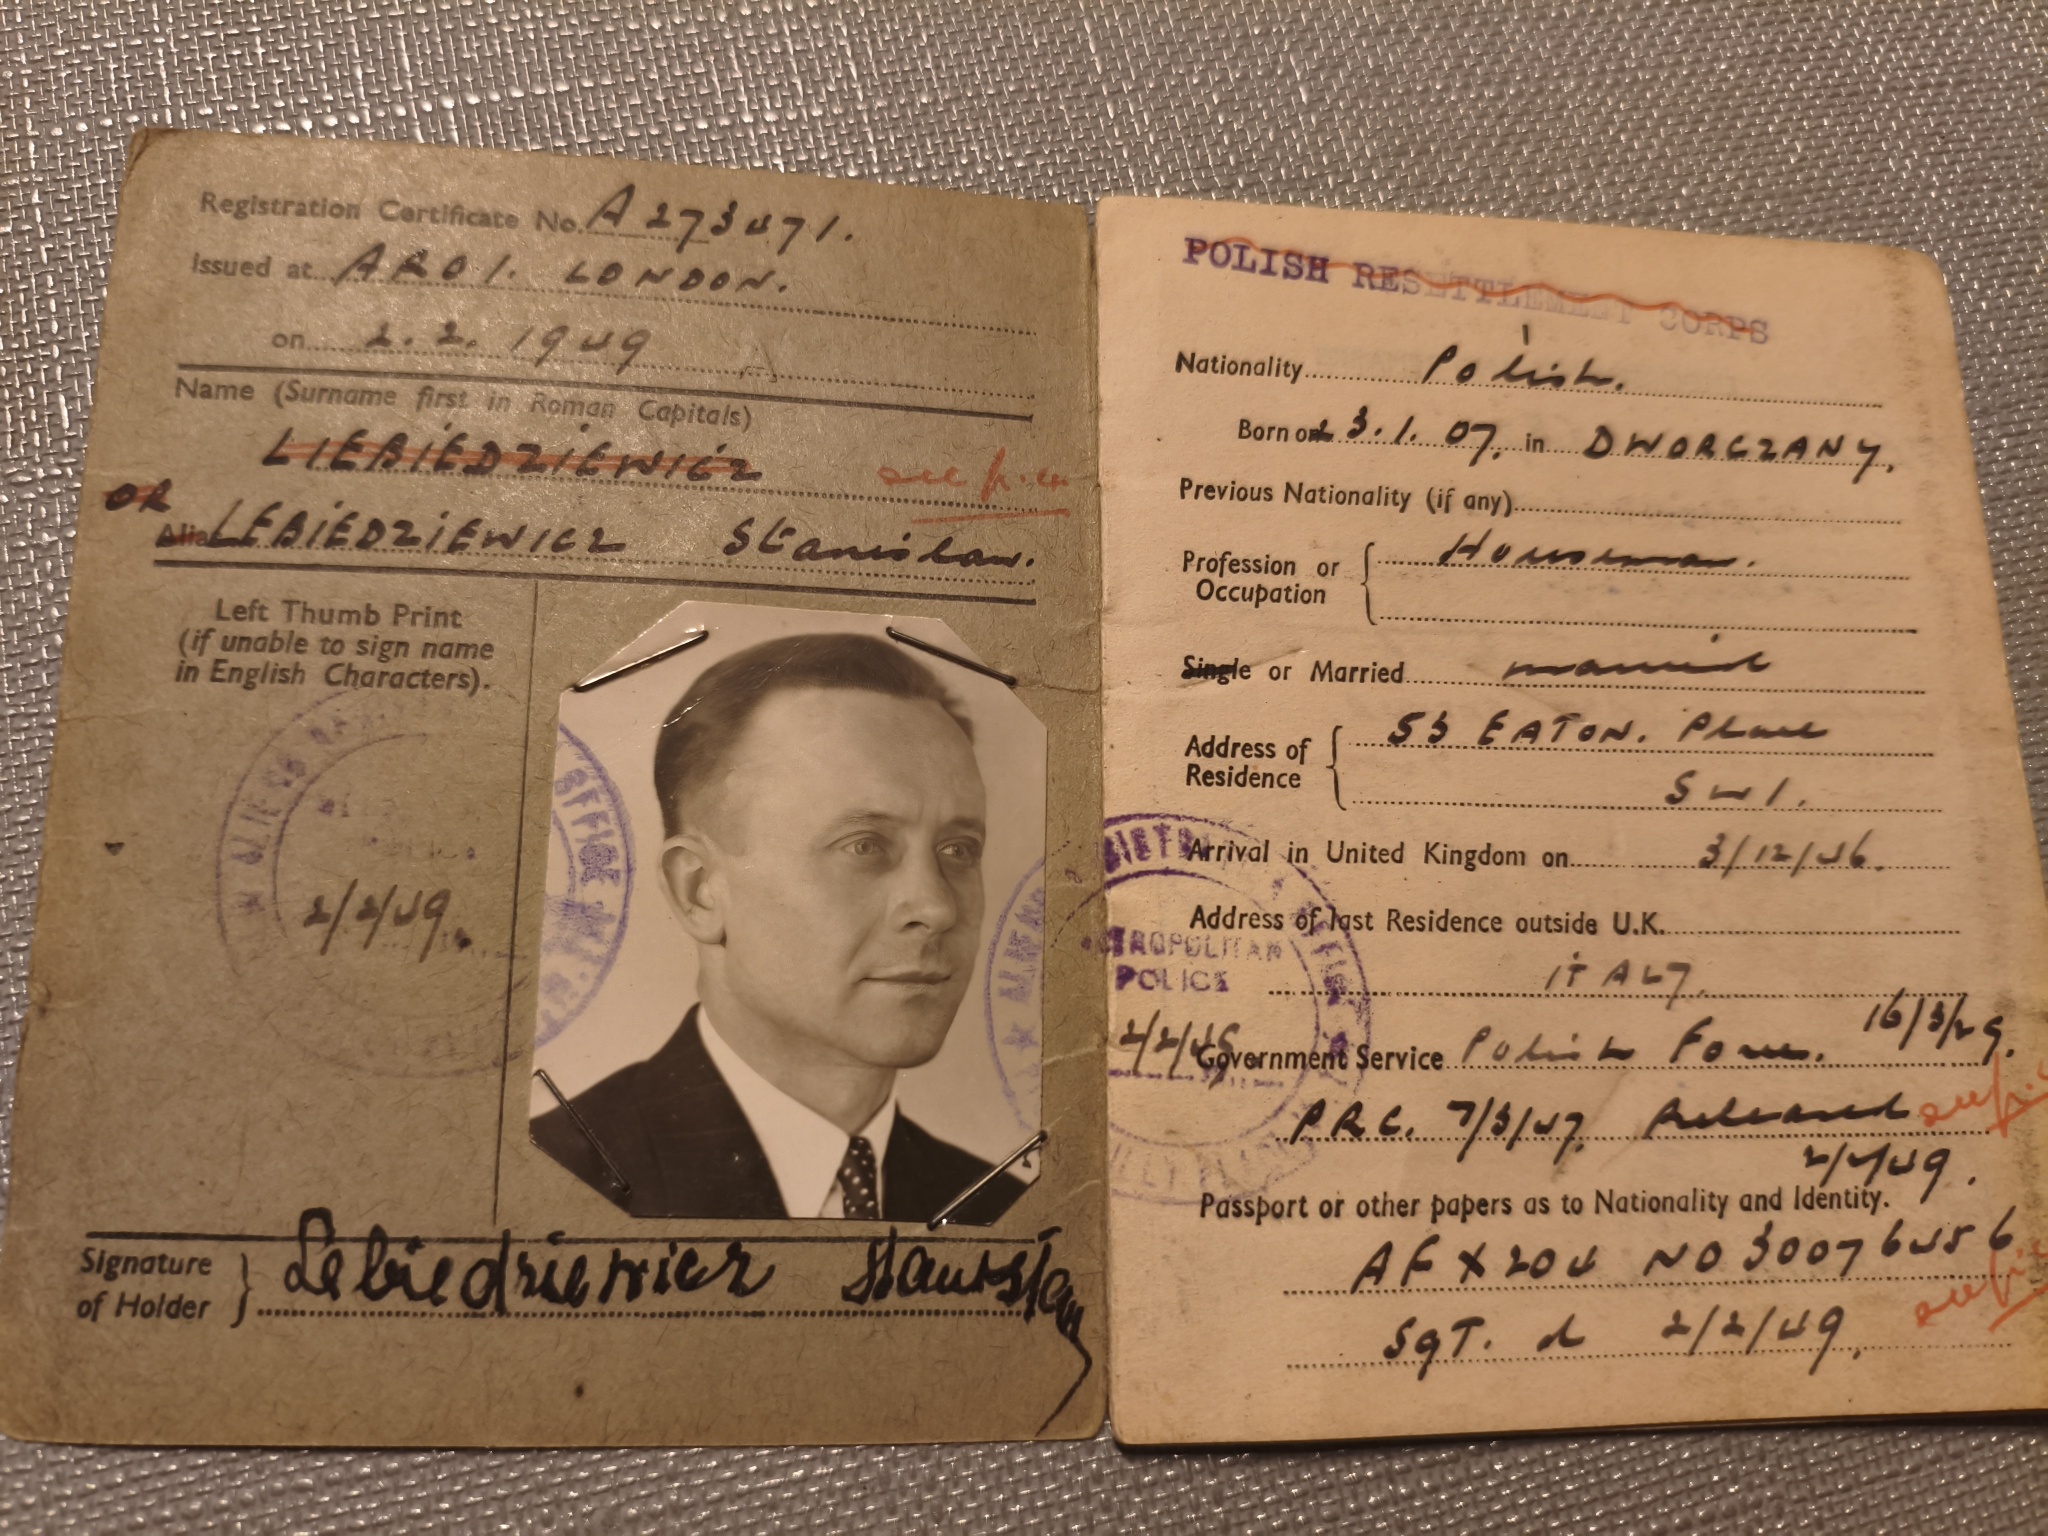 Registration Certificate No. A 273471.
Issued at ARO 1. LONDON.
on 2.2.1949
Name (Surname first in Roman Capitals)
LIEBIEDZIEWICZ see p.4
OR
Alias LEBIEDZIEWICZ Stanislaw.
Left Thumb Print
(if unable to sign name
in English Characters).
ALIENS OFFICE
2/2/49
Signature
of Holder } Lebiedziewicz Stanisław
POLISH RESETTLEMENT CORPS
Nationality Polish.
Born on 23.1.07. in DWORCZANY.
Previous Nationality (if any)
Profession or
Occupation { Houseman.
Single or Married married
Address of
Residence { 53 EATON. Place
SW1.
Arrival in United Kingdom on 3/12/46.
Address of last Residence outside U.K.
METROPOLITAN
POLICE
ITALY.
16/3/49.
2/2/49.
Government Service Polish Forces.
PRC. 7/3/47. Released see p.
2/2/49.
Passport or other papers as to Nationality and Identity.
AF X 204 NO 30076456
SGT. d 2/2/49. see p.